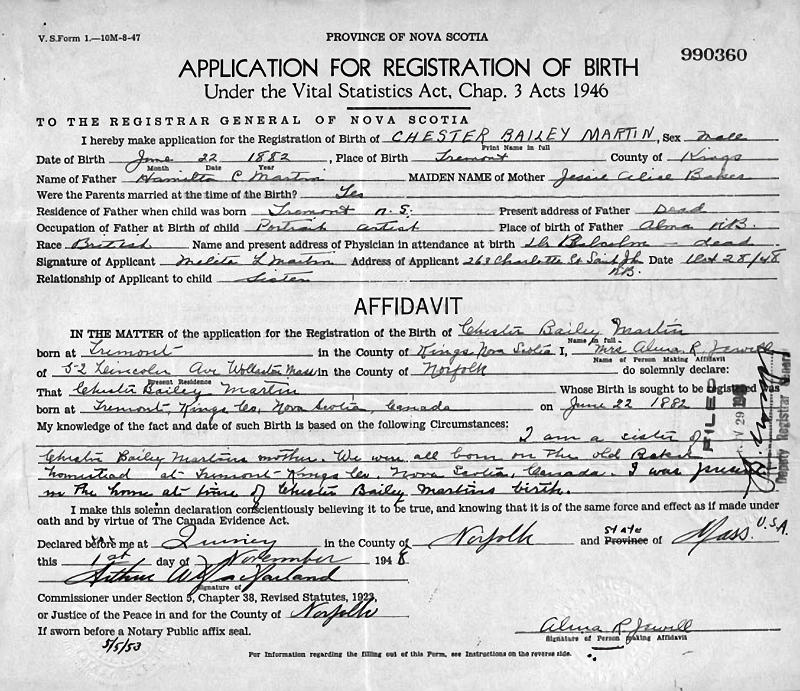 V. S. Form 1.—10M-8-47
PROVINCE OF NOVA SCOTIA
990360
APPLICATION FOR REGISTRATION OF BIRTH
Under the Vital Statistics Act, Chap. 3 Acts 1946
TO THE REGISTRAR GENERAL OF NOVA SCOTIA
I hereby make application for the Registration of Birth of CHESTER BAILEY MARTIN, Sex Male
Print Name in full
Date of Birth June 22 1882, Place of Birth Tremont County of Kings
Month Date Year
Name of Father Hamilton C Martin MAIDEN NAME of Mother Jessie Alice Baker
Were the Parents married at the time of the Birth? Yes
Residence of Father when child was born Tremont N.S. Present address of Father Dead
Occupation of Father at Birth of child Portrait artist Place of birth of Father Alma N.B.
Race British Name and present address of Physician in attendance at birth Dr — dead
Signature of Applicant Melita L Martin Address of Applicant 263 Charlotte St Saint Jhn Date Oct 28/48
N.B.
Relationship of Applicant to child Sister
AFFIDAVIT
IN THE MATTER of the application for the Registration of the Birth of Chester Bailey Martin
Name in full
born at Tremont in the County of Kings Nova Scotia I, Mrs Alma R. Jewill
Name of Person Making Affidavit
of 52 Lincoln Ave Wollaston Mass in the County of Norfolk do solemnly declare:
Present Residence
That Chester Bailey Martin Whose Birth is sought to be registered was
born at Tremont, Kings Co, Nova Scotia, Canada on June 22 1882
My knowledge of the fact and date of such Birth is based on the following Circumstances:
I am a sister of
Chester Bailey Martins mother. We were all born on the old Baker
homestead at Tremont Kings Co. Nova Scotia, Canada. I was present
in the home at time of Chester Bailey Martins birth.
FILED
NOV 29 19
Deputy Registrar General
I make this solemn declaration conscientiously believing it to be true, and knowing that it is of the same force and effect as if made under
oath and by virtue of The Canada Evidence Act.
Declared before me at Quincy in the County of Norfolk and State Province of Mass. U.S.A.
this 1st day of November 1948
Arthur W MacFarland
Signature of
Commissioner under Section 5, Chapter 38, Revised Statutes, 1923,
or Justice of the Peace in and for the County of Norfolk
If sworn before a Notary Public affix seal.
5/5/53
Alma R Jewill
Signature of Person Making Affidavit
For Information regarding the filling out of this Form, see Instructions on the reverse side.